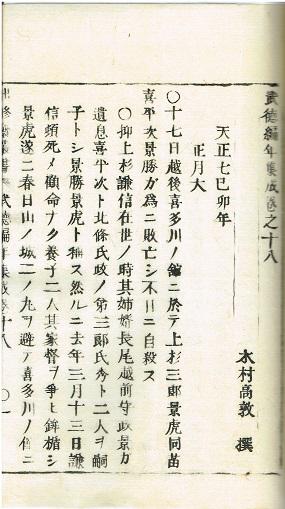 武徳編年集成巻之十八
木村高敦 撰
天正七己卯年
正月大
〇十七日越後喜多川ノ舘ニ於テ上杉三郎景虎同苗
喜平次景勝ガ為ニ敗亡シ不日ニ自殺ス
〇抑上杉謙信在世ノ時其姉婿長尾越前守政景ガ
遺息喜平次ト北條氏政ノ第三郎氏秀ト二人ヲ嗣
子トシ景勝景虎ト称ス然ルニ去年三月十三日謙
信頓死メ顧命ナク養子二人其家督ヲ争ヒ鉾楯シ
景虎遂ニ春日山ノ城二ノ丸ヲ避テ喜多川ノ舘ニ
武徳編年集成巻十八 〇一